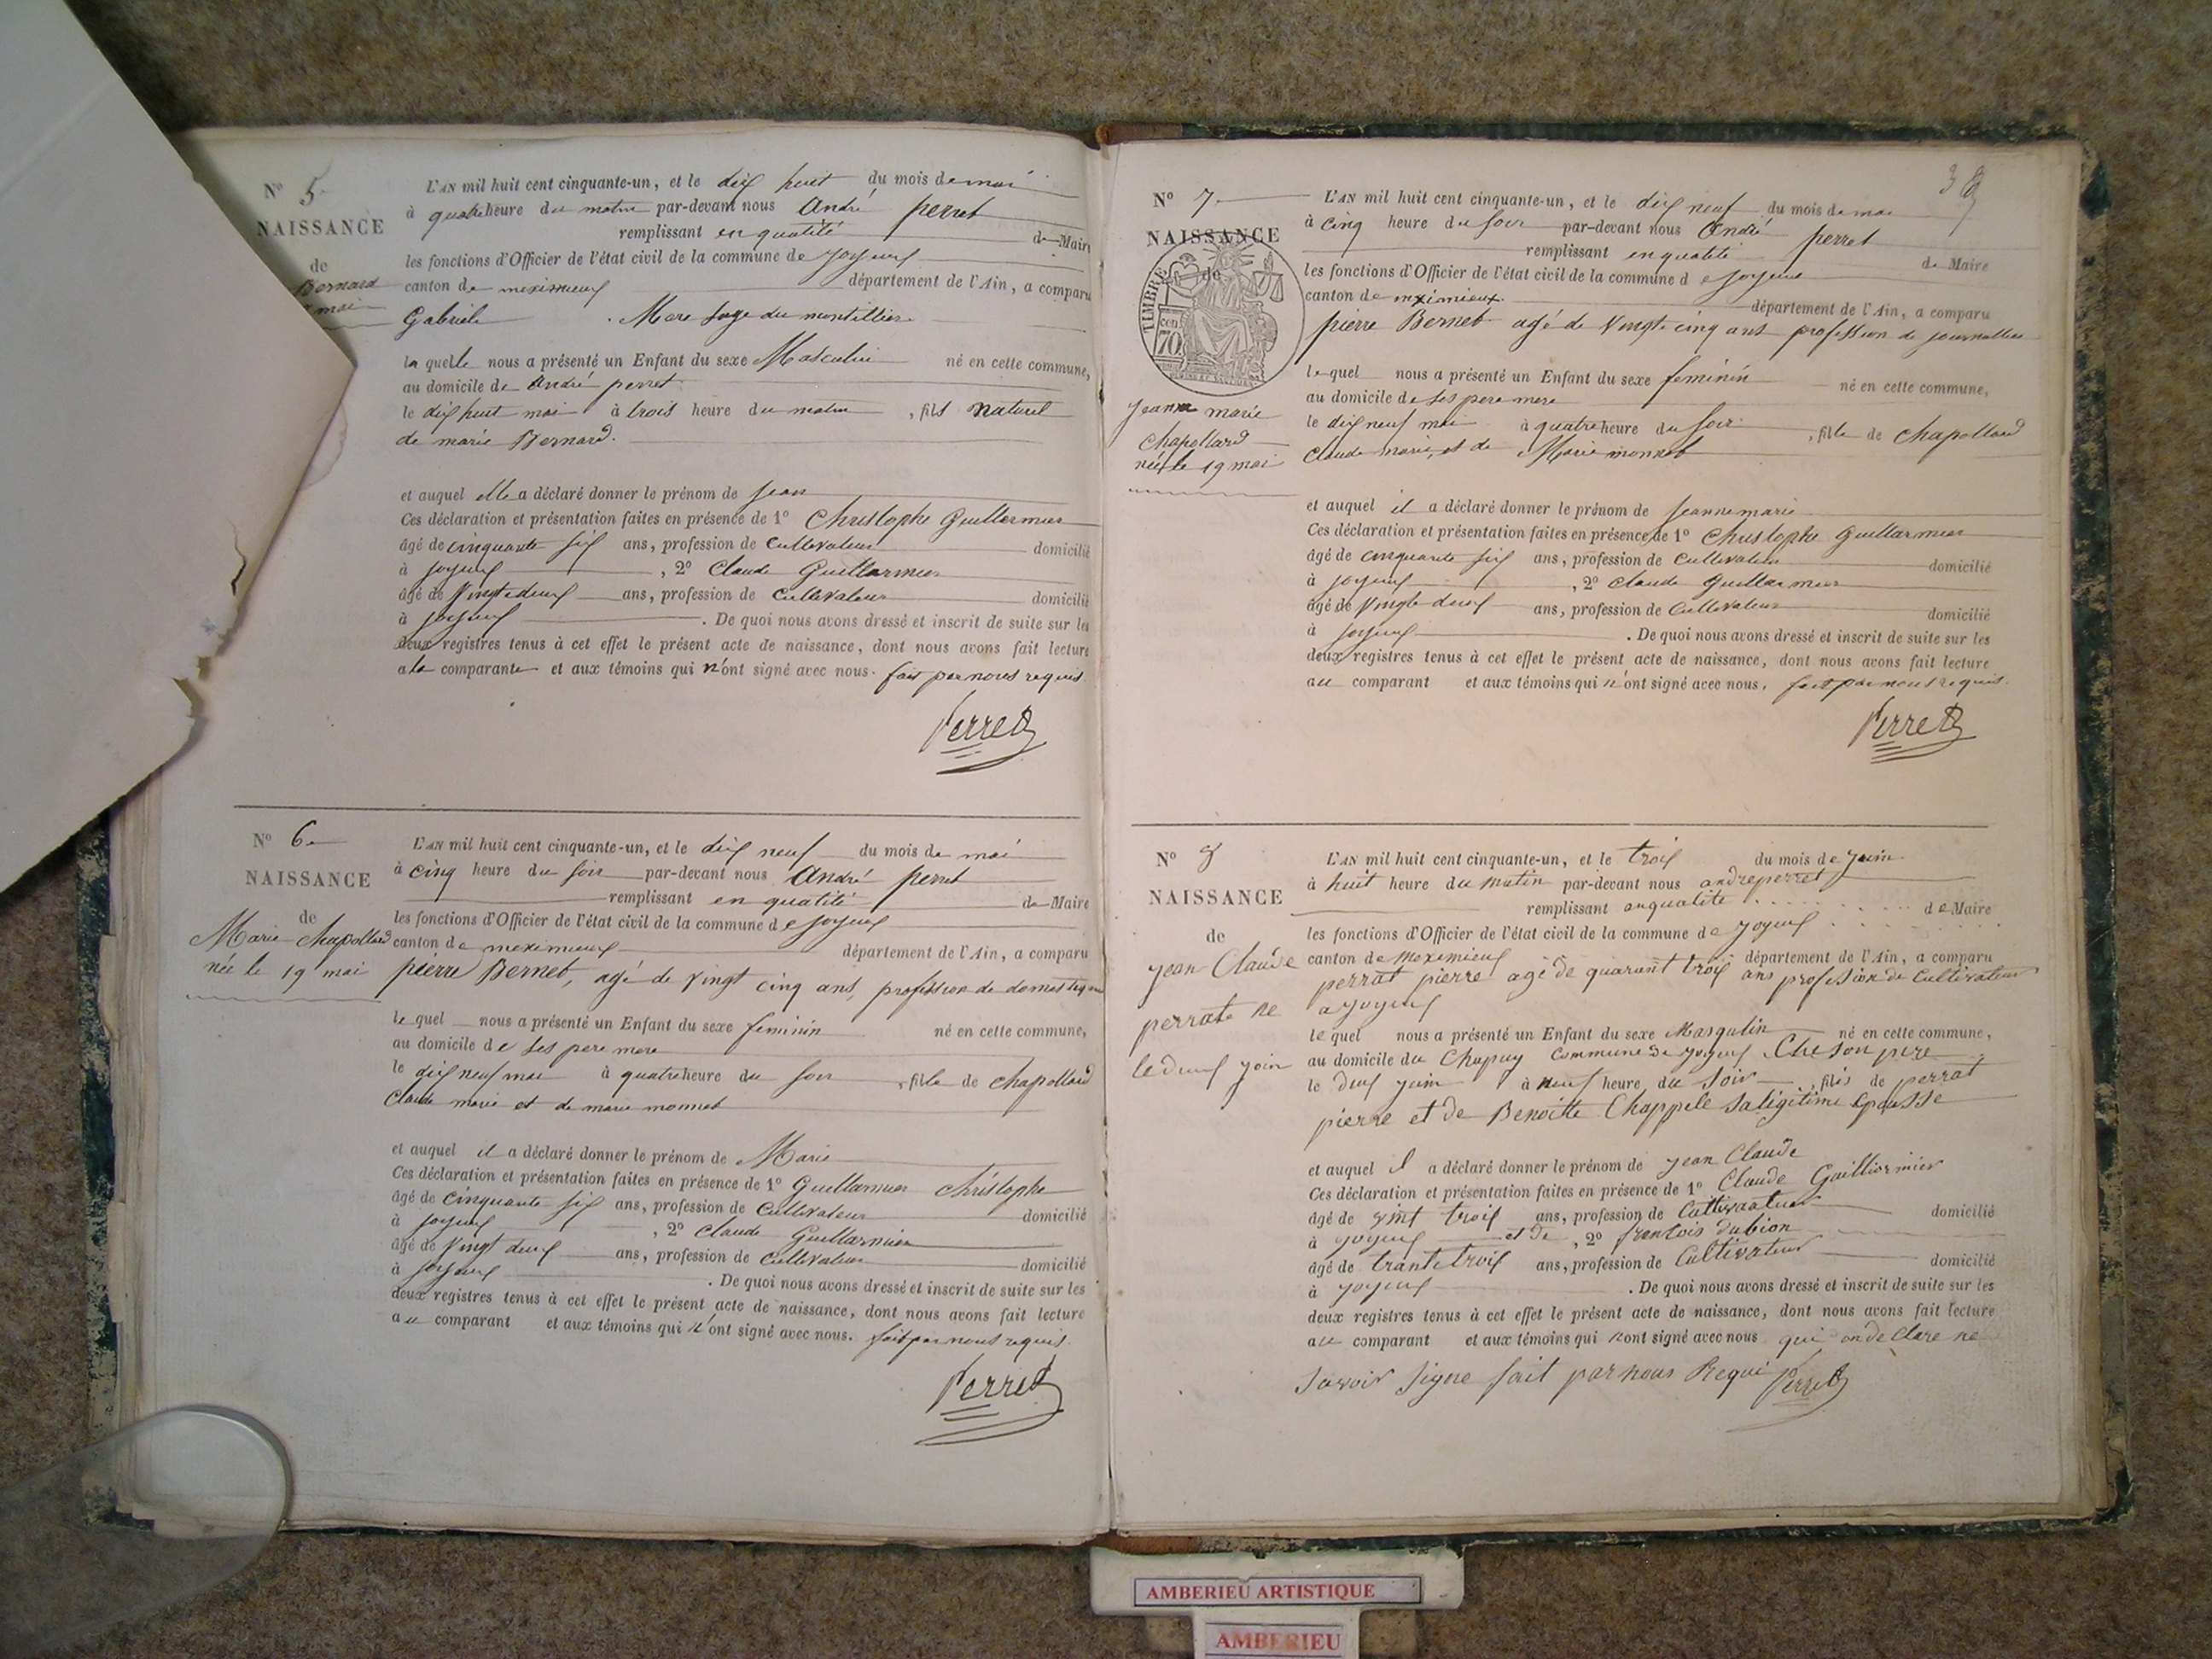 N° 5.
NAISSANCE
de
Bernard
mai
L'AN mil huit cent cinquante-un, et le dix huit du mois de mai
à quatre heure du matin par-devant nous André perret
remplissant en qualité de Maire
les fonctions d'Officier de l'état civil de la commune de joyeux
canton de meximieux département de l'Ain, a comparu
Gabriele Mere sage du montellier
la quelle nous a présenté un Enfant du sexe Masculin né en cette commune,
au domicile de André perret
le dix huit mai à trois heure du matin, fils naturel
de marie Bernard.
et auquel elle a déclaré donner le prénom de jean
Ces déclaration et présentation faites en présence de 1° Christophe Guillarmier
âgé de cinquante six ans, profession de Cultivateur domicilié
à joyeux, 2° Claude Guillarmier
âgé de Vingt deux ans, profession de Cultivateur domicilié
à joyeux. De quoi nous avons dressé et inscrit de suite sur les
deux registres tenus à cet effet le présent acte de naissance, dont nous avons fait lecture
a la comparante et aux témoins qui n'ont signé avec nous. fait par nous requis
Perret
N° 6
NAISSANCE
de
Marie Chapolland
née le 19 mai
L'AN mil huit cent cinquante-un, et le dix neuf du mois de mai
à cinq heure du soir par-devant nous André perret
remplissant en qualité de Maire
les fonctions d'Officier de l'état civil de la commune de joyeux
canton de meximieux département de l'Ain, a comparu
pierre Bernet, agé de vingt cinq ans, profession de domestique
le quel nous a présenté un Enfant du sexe feminin né en cette commune,
au domicile de ses pere mere
le dix neuf mai à quatre heure du soir, fille de chapolland
Claude marie et de marie monnet
et auquel il a déclaré donner le prénom de Marie
Ces déclaration et présentation faites en présence de 1° Guillarmier christophe
âgé de cinquante six ans, profession de Cultivateur domicilié
à joyeux, 2° Claude Guillarmier
âgé de Vingt deux ans, profession de Cultivateur domicilié
à joyeux. De quoi nous avons dressé et inscrit de suite sur les
deux registres tenus à cet effet le présent acte de naissance, dont nous avons fait lecture
au comparant et aux témoins qui n'ont signé avec nous. fait par nous requis.
Perret
N° 7
NAISSANCE
de
TIMBRE
70
jeanne marie
Chapolland
née le 19 mai
L'AN mil huit cent cinquante-un, et le dix neuf du mois de mai
à cinq heure du soir par-devant nous André perret
remplissant en qualité de Maire
les fonctions d'Officier de l'état civil de la commune de joyeux
canton de meximieux département de l'Ain, a comparu
pierre Bernet agé de Vingt cinq ans profession de journallier
le quel nous a présenté un Enfant du sexe feminin né en cette commune,
au domicile de ses pere mere
le dix neuf mai à quatre heure du soir, fille de chapolland
Claude marie, et de Marie monnet
et auquel il a déclaré donner le prénom de jeanne marie
Ces déclaration et présentation faites en présence de 1° Christophe Guillarmier
âgé de cinquante six ans, profession de Cultivateur domicilié
à joyeux, 2° Claude Guillarmier
âgé de Vingt deux ans, profession de Cultivateur domicilié
à joyeux. De quoi nous avons dressé et inscrit de suite sur les
deux registres tenus à cet effet le présent acte de naissance, dont nous avons fait lecture
au comparant et aux témoins qui n'ont signé avec nous, fait par nous requis.
Perret
N° 8
NAISSANCE
de
jean Claude
perrat ne
le deux juin
L'AN mil huit cent cinquante-un, et le trois du mois de juin
à huit heure du matin par-devant nous andre perret
remplissant anqualité de Maire
les fonctions d'Officier de l'état civil de la commune de joyeux
canton de Meximieux département de l'Ain, a comparu
perrat pierre agé de quarant trois ans profession de Cultivateur
a joyeux
le quel nous a présenté un Enfant du sexe Masqulin né en cette commune,
au domicile du Chapuy Commune de joyeux Ché son pere
le deux juin à neuf heure du soir, fils de perrat
pierre et de Benoitte Chappele saligitime Epousse
et auquel il a déclaré donner le prénom de jean Claude
Ces déclaration et présentation faites en présence de 1° Claude Guilliermier
âgé de vint trois ans, profession de Cultivaateur domicilié
à joyeux et de, 2° francois dubion
âgé de trante trois ans, profession de Cultivateur domicilié
à joyeux. De quoi nous avons dressé et inscrit de suite sur les
deux registres tenus à cet effet le présent acte de naissance, dont nous avons fait lecture
au comparant et aux témoins qui nont signé avec nous qui on de Clare ne
savoir signe fait par nous Requi Perret
AMBERIEU ARTISTIQUE
AMBERIEU